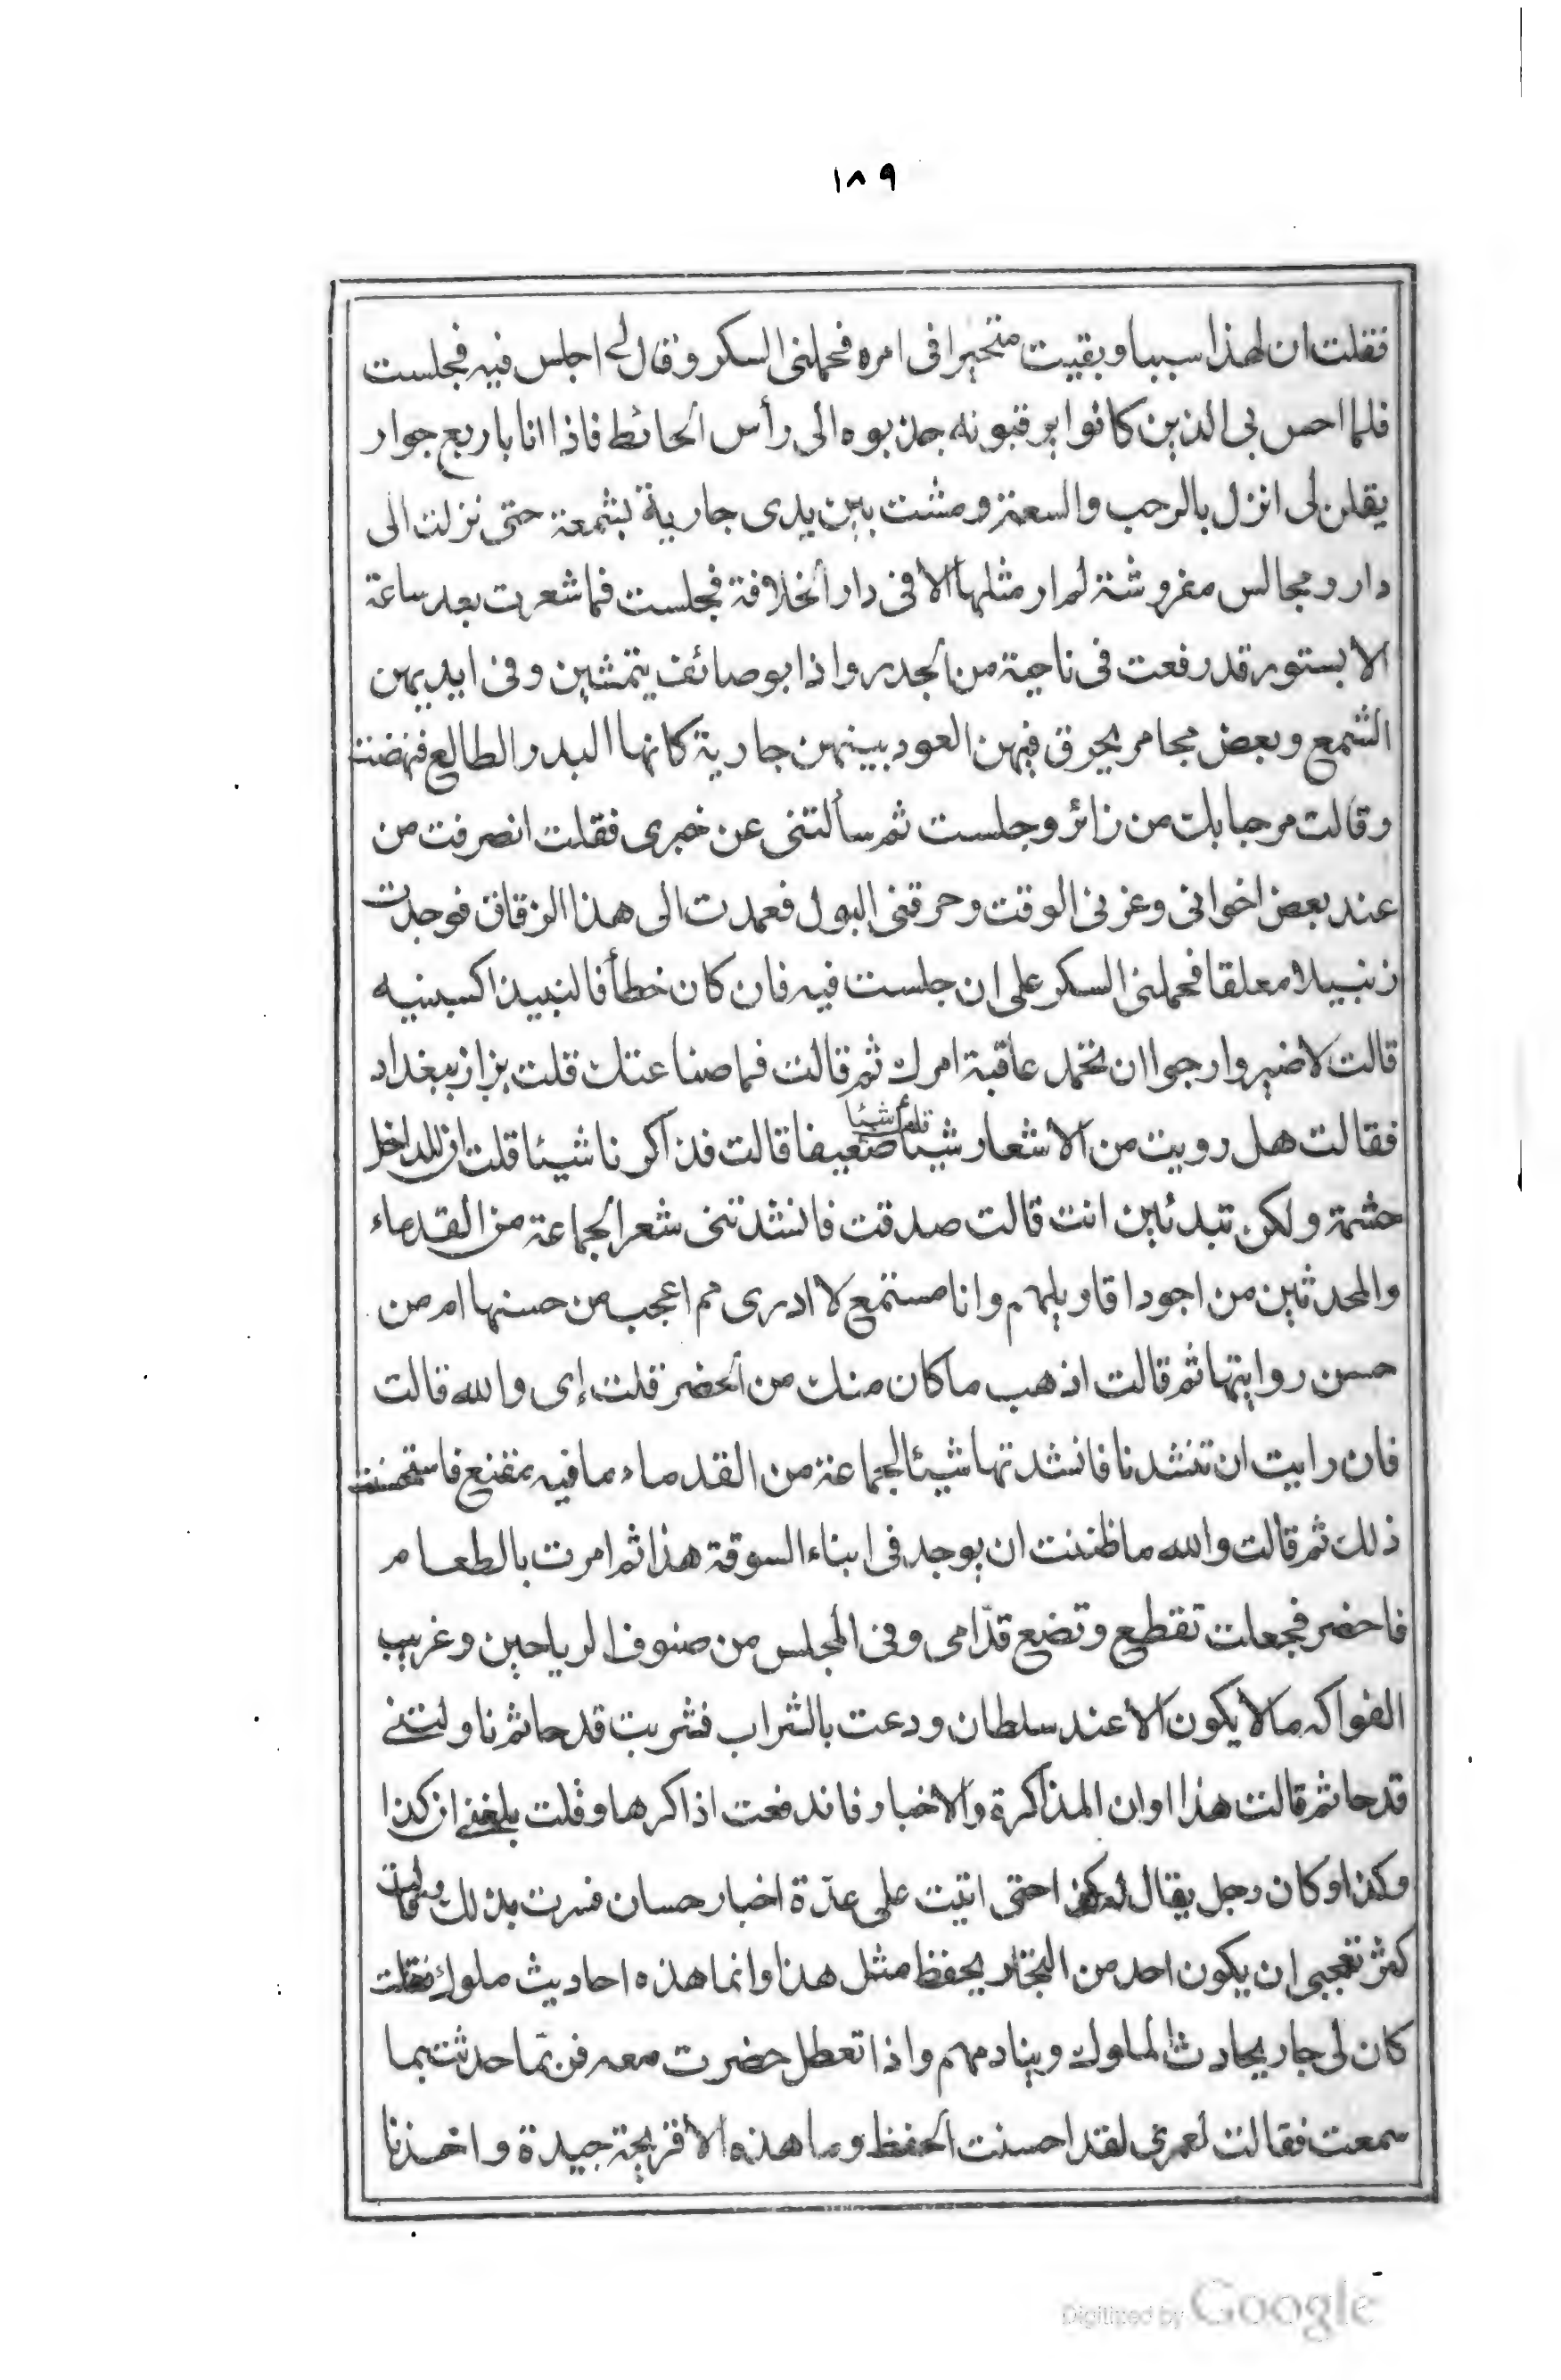 ١٨٩
فقلت ان لهذا سببا وبقيت متحيرا فى امره فحملنى السكر وقال لے اجلس فيه فجلست
فلما احس بى الذين كانوا يرقبونه جذبوه الى رأس الحائط فاذا انا باربع جوار
يقلن لى انزل بالرحب والسعة ومشت بين يدى جارية بشمعة حتى نزلت الى
دار ومجالس مفروشة لم ار مثلها الا فى دار الخلافة فجلست فما شعرت بعد ساعة
الا بستور قد رفعت فى ناحية من الجدر واذا بوصائف يتمشين وفى ايديهن
الشمع وبعض مجامر يحرق فيهن العود بينهن جارية كانها البدر الطالع فنهضت
وقالت مرحبا بك من زائر وجلست ثم سألتنى عن خبرى فقلت انصرفت من
عند بعض اخوانى وغرنى الوقت وحرقنى البول فعمدت الى هذا الزقاق فوجدت
زنبيلا معلقا فحملنى السكر على ان جلست فيه فان كان خطأ فالنبيذ اكسبنيه
قالت لا ضير وارجوا ان تحمد عاقبة امرك ثم قالت فما صناعتك قلت بزاز ببغداد
فقالت هل رويت من الاشعار شيئا قلت شيئا ضعيفا قالت فذاكرنا شيئا قلت ان للداخل
حشمة ولكن تبدئين انت قالت صدقت فانشدتنى شعرا لجماعة من القدماء
والمحدثين من اجود اقاويلهم وانا مستمع لا ادرى مم اعجب من حسنها ام من
حسن روايتها ثم قالت اذهب ما كان منك من الحضر قلت إى والله قالت
فان رايت ان تنشدنا فانشدتها شيئا لجماعة من القدماء ما فيه مقنع فاستحسنت
ذلك ثم قالت والله ما ظننت ان يوجد فى ابناء السوقة هذا ثم امرت بالطعام
فاحضر فجعلت تقطع وتضع قدّامى وفى المجلس من صنوف الرياحين وغريب
الفواكه ما لا يكون الا عند سلطان ودعت بالشراب فشربت قدحا ثم ناولتنے
قدحا ثم قالت هذا اوان المذاكرة والاخبار فاندفعت اذاكرها وقلت بلغنے ان كذا
وكذا وكان رجل يقال له كذا حتى اتيت على عدّة اخبار حسان فسرت بذلك وقالت
كثر تعجبى ان يكون احد من التجار يحفظ مثل هذا وانما هذه احاديث ملوك فقلت
كان لى جار يحادث الملوك وينادمهم واذا تعطل حضرت معه فربّما حدثت بما
سمعت فقالت لعمرى لقد احسنت الحفظ وما هذه الا قريحة جيدة واخذنا
Digitized by Google